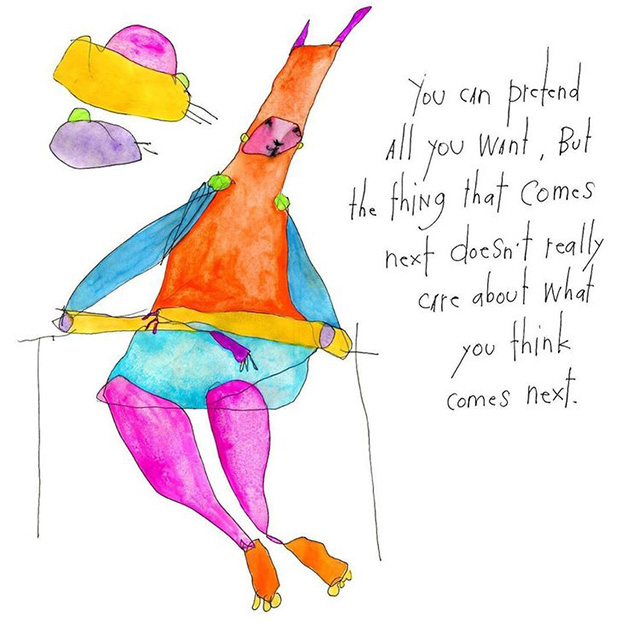 You can pretend
All you want, But
the thing that comes
next doesn't really
care about what
you think
comes next.